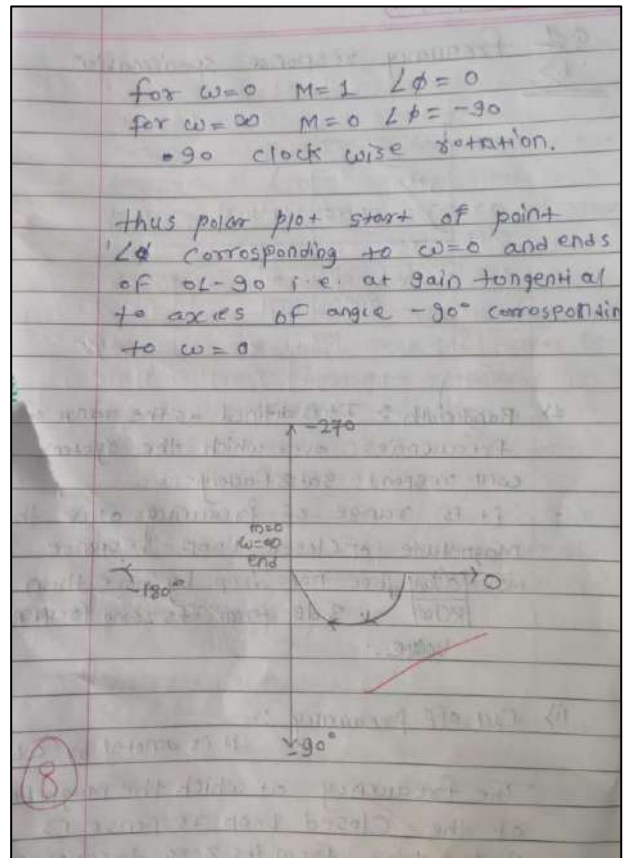 for ω=0 M=1 ∠ϕ=0
for ω=∞ M=0 ∠ϕ=-90
•90 clock wise rotation.
thus polar plot start of point
'∠ϕ corrosponding to ω=0 and ends
of 0∠-90 i.e. at gain tongential
to axies of angle -90° corrospondin
to ω=0
-270
ω=∞
end
-180°
0
-90°
8